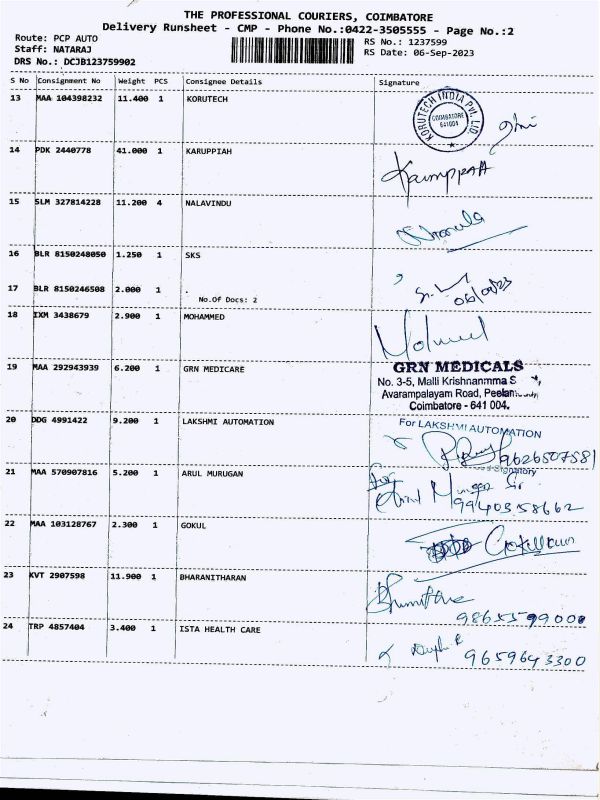 THE PROFESSIONAL COURIERS, COIMBATORE
Delivery Runsheet - CMP - Phone No.:0422-3505555 - Page No.:2
Route: PCP AUTO
Staff: NATARAJ
DRS No.: DCJB123759902
RS No.: 1237599
RS Date: 06-Sep-2023
S No Consignment No Weight PCS Consignee Details Signature
13 MAA 104398232 11.400 1 KORUTECH
KORUTECH INDIA Pvt. LTD.
COIMBATORE
641004
14 PDK 2440778 41.000 1 KARUPPIAH
15 SLM 327814228 11.200 4 NALAVINDU
16 BLR 8150248050 1.250 1 SKS
17 BLR 8150246508 2.000 1 .
No.Of Docs: 2
06/09/23
18 IXM 3438679 2.900 1 MOHAMMED
19 MAA 292943939 6.200 1 GRN MEDICARE
GRN MEDICALS
No. 3-5, Malli Krishnanmma S
Avarampalayam Road,
Coimbatore - 641 004.
20 DDG 4991422 9.200 1 LAKSHMI AUTOMATION
For LAKSHMI AUTOMATION
9626507581
Signatory
21 MAA 570907816 5.200 1 ARUL MURUGAN
for
Sir
9940358662
22 MAA 103128767 2.300 1 GOKUL
23 KVT 2907598 11.900 1 BHARANITHARAN
9865599000
24 TRP 4857404 3.400 1 ISTA HEALTH CARE
9659643300